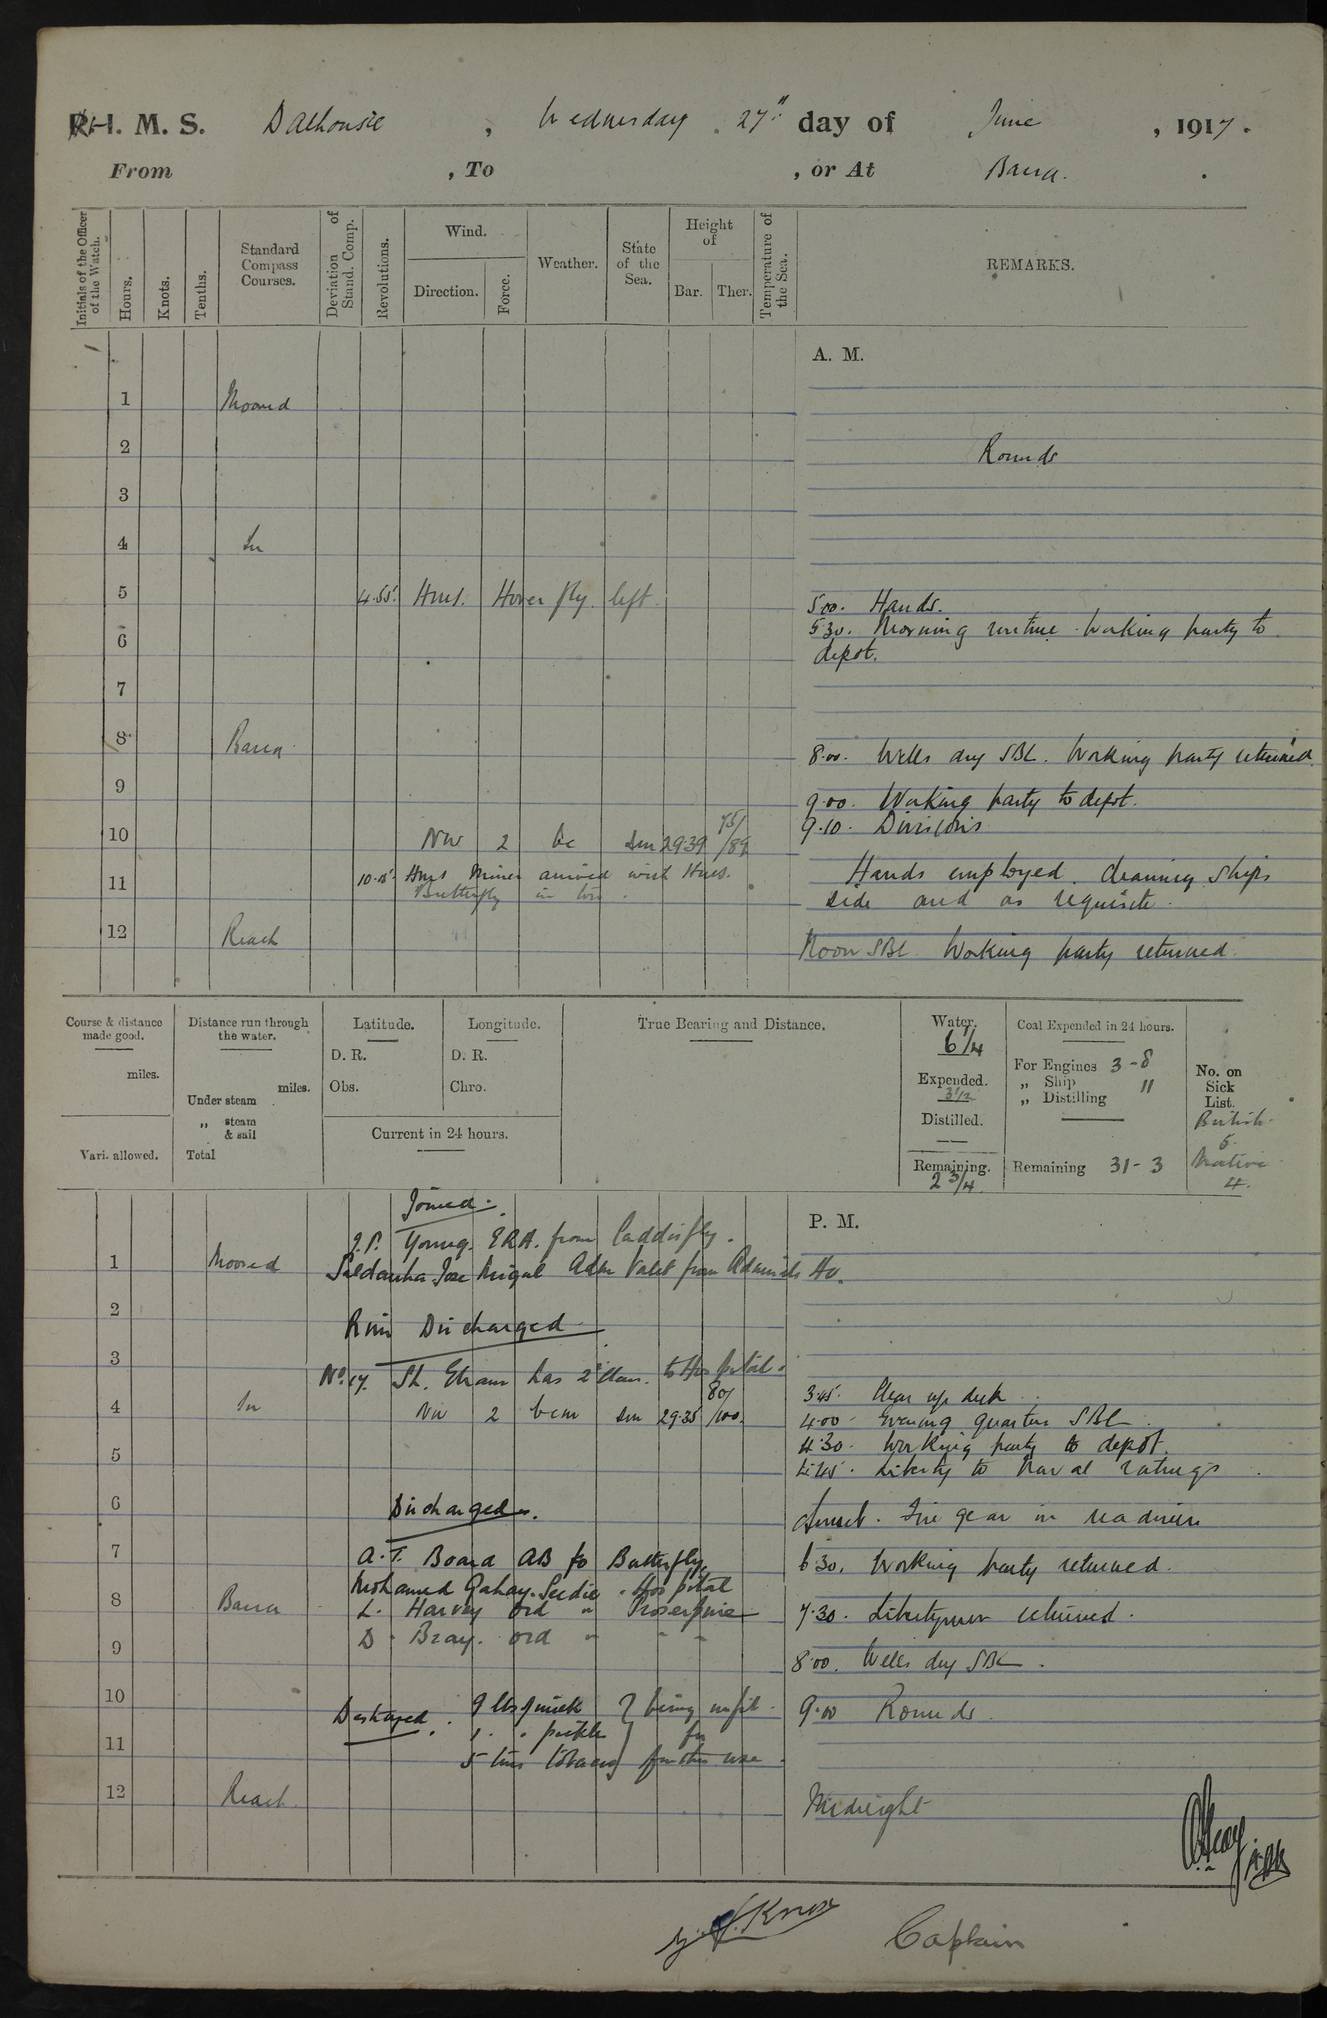 R.I. M. S. Dalhousie, Wednesday 27th day of June, 1917.
From , To , or At Basra.
Initials of the Officer of the Watch.
Hours.
Knots.
Tenths.
Standard Compass Courses.
Deviation of Stand. Comp.
Revolutions.
Wind.
Direction.
Force.
Weather.
State of the Sea.
Height of
Bar.
Ther.
Temperature of the Sea.
REMARKS.
A. M.
1 Moored
2 Rounds
3
4 In
5 4.55. H.M.S. Hover fly. left. 5.00. Hands.
5.30. Morning routine. Working party to
6 depot.
7
8 Basra. 8.00. Wells dry SBL. Working party returned
9 9.00. Working party to depot.
9.10. Divisions.
10 NW 2 bc Sm 29.39 75/89
11 10.15. HMS Miner arrived with HMS. Hands employed. cleaning ships
Butterfly in tow. side and as requisite.
12 Reach Noon SBL Working party returned.
Course & distance made good.
miles.
Vari. allowed.
Distance run through the water.
miles.
Under steam
„ steam & sail
Total
Latitude.
D. R.
Obs.
Longitude.
D. R.
Chro.
Current in 24 hours.
True Bearing and Distance.
Water.
6/4
Expended.
3 1/2
Distilled.
Remaining.
2 3/4
Coal Expended in 24 hours.
For Engines 3-8
„ Ship 11
„ Distilling
Remaining 31-3
No. on Sick List.
British.
5.
Native
4.
P. M.
Joined.
Young. ERA. from Caddisfly.
1 Moored Saldanha Jose Miguel Adm Valet from Admirals
2 Discharged
3
No. 17. Sk. to Hospital.
4 In NW 2 bcm Sm 29.35 80/100. 3.45. Clear up deck
4.00 Evening quarters SBL.
4.30. Working party to depot.
5 4.45. Liberty to Naval ratings.
6 Discharged. Sunset. Fire gear in readiness
7 A.T. Board AB to Butterfly 6.30. Working party returned.
Mohamed Seedie " Hospital
8 Basra L. Harvey Ord " Proserpine 7.30. Libertymen returned.
9 D. Bray. Ord " " " 8.00. Wells dry SBL.
10 Destroyed. 9 lbs } being unfit 9.00 Rounds.
11 1 " pickle } for
5 tins tobacco } further use.
12 Reach. Midnight
Knox
Captain